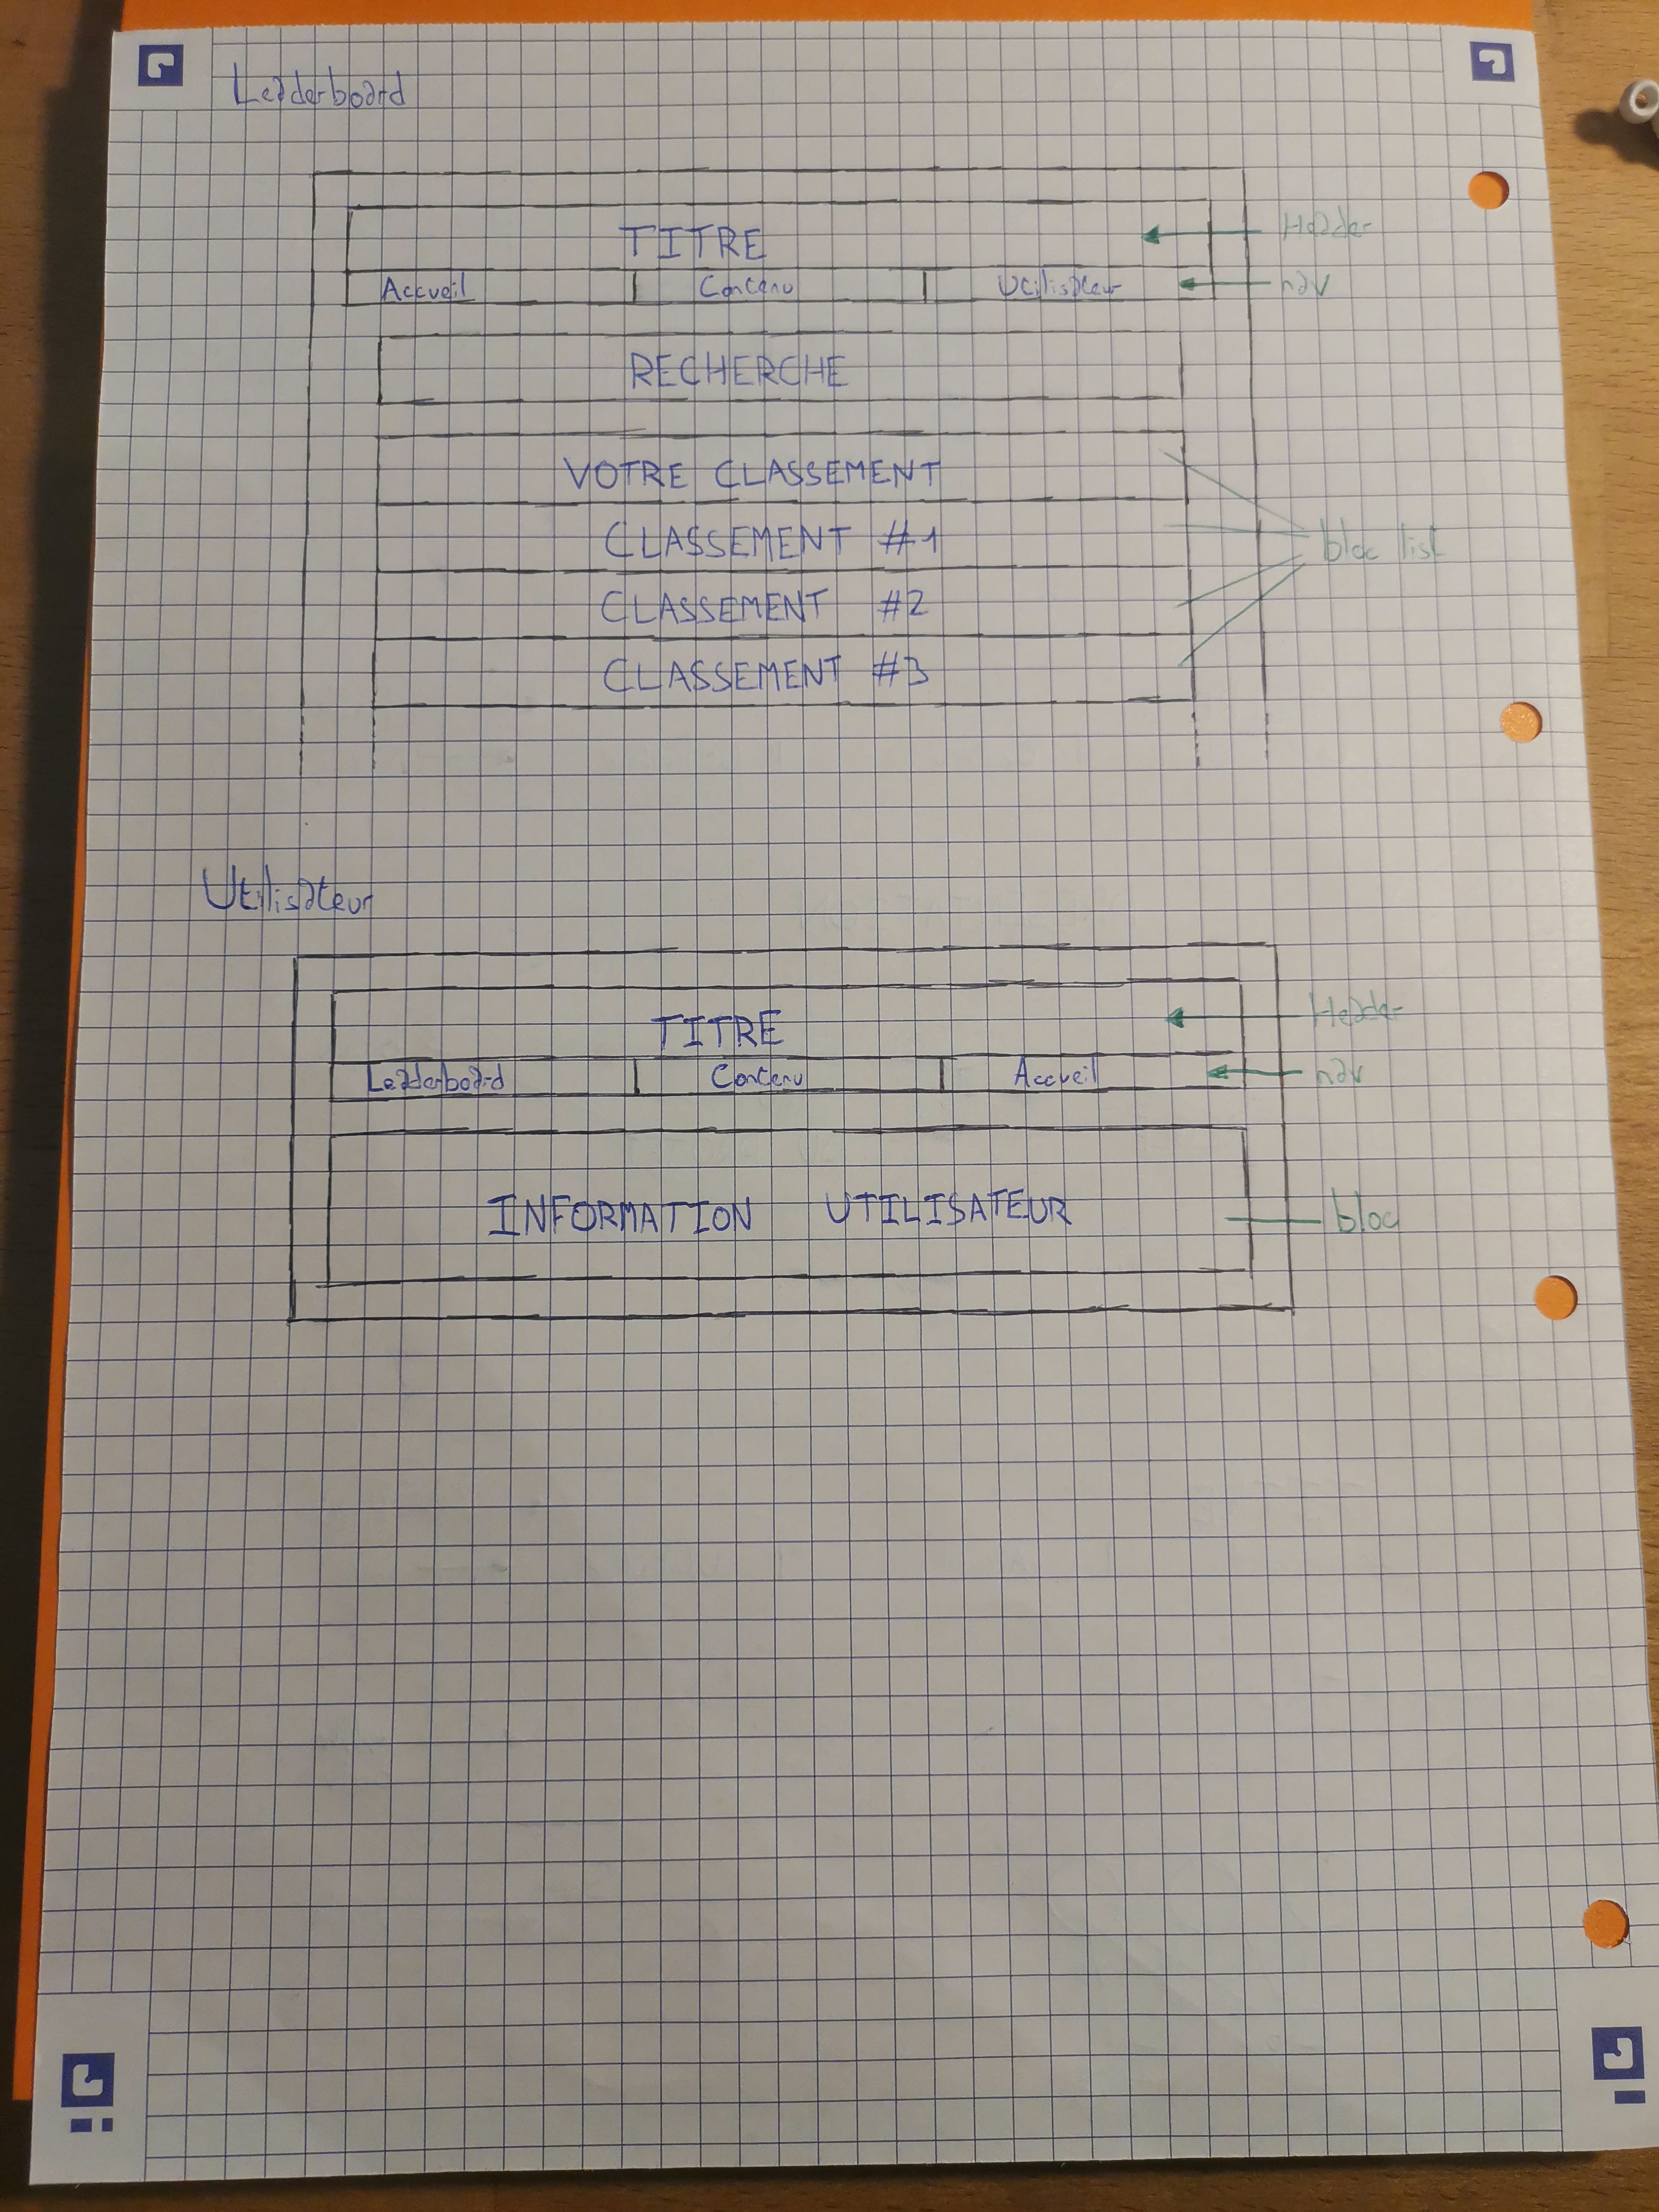 Leaderboard
TITRE
Header
Accueil Contenu Utilisateur
nav
RECHERCHE
VOTRE CLASSEMENT
CLASSEMENT #1
bloc list
CLASSEMENT #2
CLASSEMENT #3
Utilisateur
TITRE
Header
Leaderboard Contenu Accueil
nav
INFORMATION UTILISATEUR
bloc